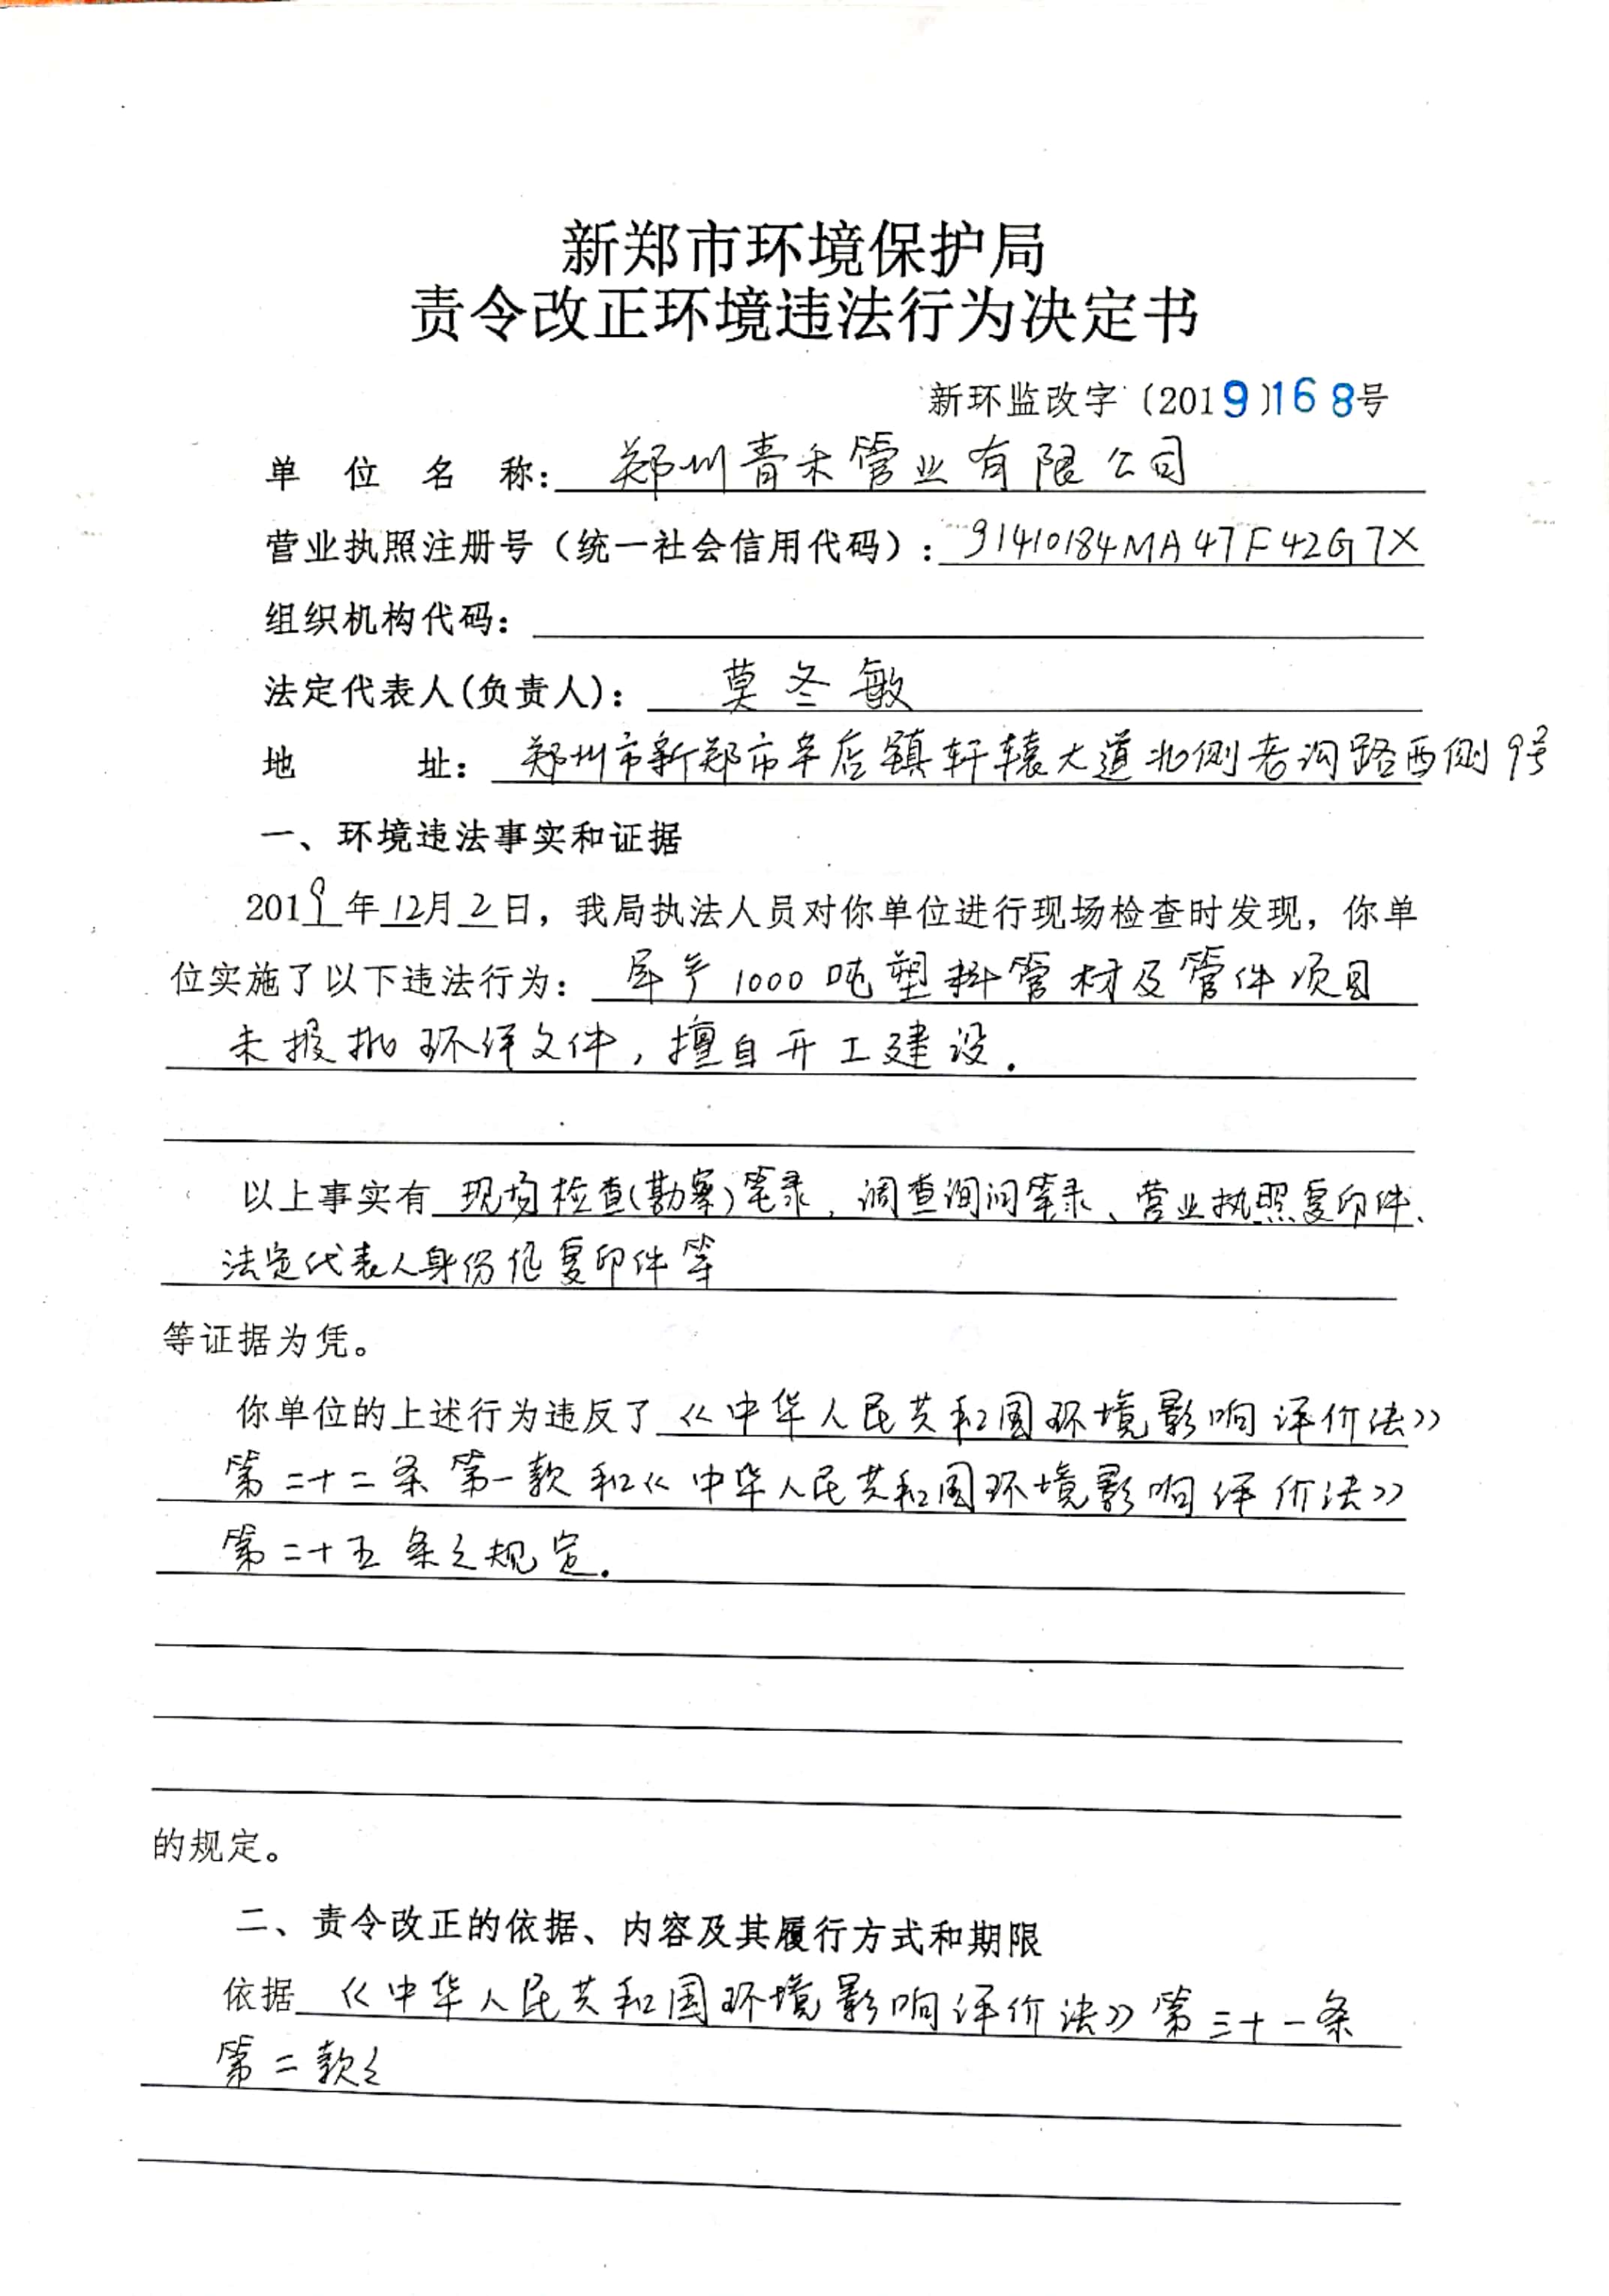 新郑市环境保护局
责令改正环境违法行为决定书
新环监改字〔2019〕168号
单位名称：郑州青禾管业有限公司
营业执照注册号（统一社会信用代码）：91410184MA47F42G7X
组织机构代码：
法定代表人(负责人)：莫冬敏
地址：郑州市新郑市辛店镇轩辕大道北侧老沟路西侧9号
一、环境违法事实和证据
2019年12月2日，我局执法人员对你单位进行现场检查时发现，你单
位实施了以下违法行为：年产1000吨塑料管材及管件项目
未报批环评文件，擅自开工建设.
以上事实有现场检查(勘察)笔录、调查询问笔录、营业执照复印件、
法定代表人身份证复印件等
等证据为凭。
你单位的上述行为违反了《中华人民共和国环境影响评价法》
第二十二条第一款和《中华人民共和国环境影响评价法》
第二十五条之规定.
的规定。
二、责令改正的依据、内容及其履行方式和期限
依据《中华人民共和国环境影响评价法》第三十一条
第二款之